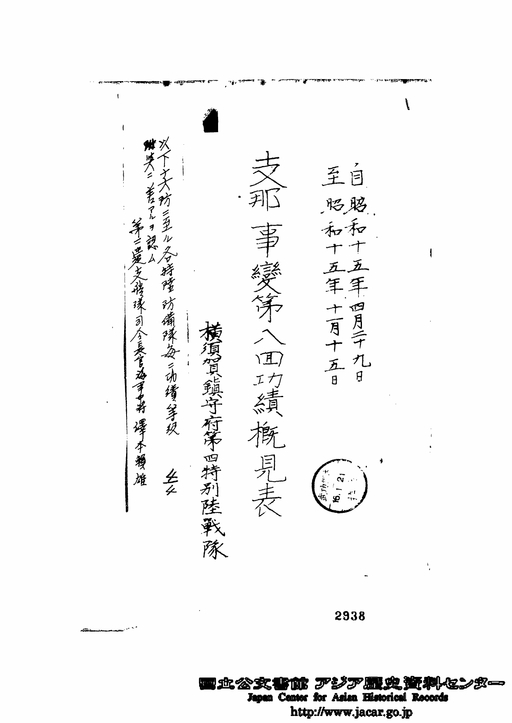 自昭和十五年四月二十九日
至昭和十五年十一月十五日
支那事變第八回功績概見表
横須賀鎮守府第四特別陸戰隊
以下 至ル各特陸防備隊毎ニ功績等級
ヲ認ム
第二遣支艦隊司令長官海軍中將 澤本頼雄
16.1.21
2938
国立公文書館 アジア歴史資料センター
Japan Center for Asian Historical Records
http://www.jacar.go.jp